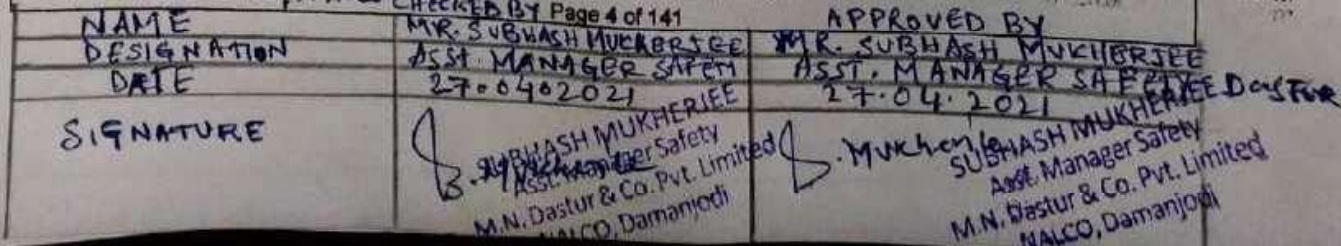 CHECKED BY Page 4 of 141 APPROVED BY
NAME MR. SUBHASH MUCKERJEE MR. SUBHASH MUKHERJEE
DESIGNATION ASST. MANAGER SAFETY ASST. MANAGER SAFETY
DATE 27.04.2021 27.04.2021
SIGNATURE
SUBHASH MUKHERJEE
Asst. Manager Safety
M.N. Dastur & Co. Pvt. Limited
NALCO, Damanjodi
S. Mukherjee
SUBHASH MUKHERJEE
Asst. Manager Safety
M.N. Dastur & Co. Pvt. Limited
NALCO, Damanjodi